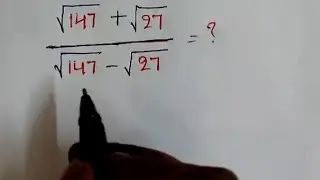 √147 + √27
√147 − √27 = ?